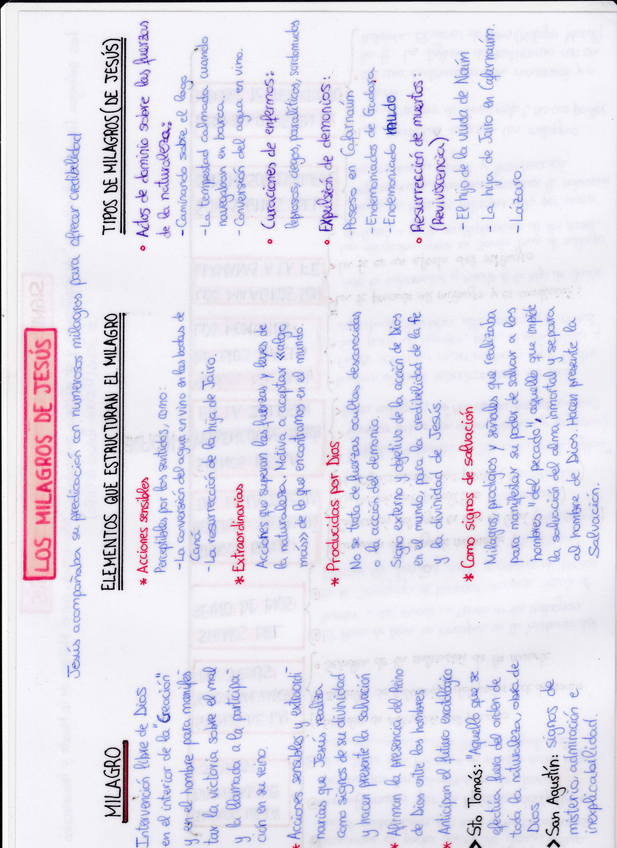 LOS MILAGROS DE JESÚS
Jesús acompañaba su predicación con numerosos milagros para ofrecer credibilidad
MILAGRO
Intervención libre de Dios
en el interior de la Creación
y en el hombre para manifes-
tar la victoria sobre el mal
y la llamada a la participa
ción en su reino.
* Acciones sensibles y extraordi-
narias que Jesús realiza
como signos de su divinidad
y hacen presente la salvación
* Afirman la presencia del Reino
de Dios entre los hombres.
* Anticipan el futuro escatológico
> Sto Tomás: "Aquello que se
efectúa fuera del orden de
toda la naturaleza, obra de
Dios
> San Agustín: signos de
misterio, admiración e
inexplicabilidad.
ELEMENTOS QUE ESTRUCTURAN EL MILAGRO
* Acciones sensibles
Perceptibles por los sentidos, como:
- La conversión del agua en vino en las bodas de
Caná.
- La resurrección de la hija de Jairo.
* Extraordinarias
Acciones que superan las fuerzas y leyes de
la naturaleza. Motiva a aceptar "algo
más" de lo que encontramos en el mundo.
* Producidas por Dios
No se trata de fuerzas ocultas desconocidas
o la acción del demonio
Signo externo y objetivo de la acción de Dios
en el mundo para la credibilidad de la fe
y la divinidad de Jesús.
* Como signos de salvacion
Milagros, prodigios y señales que realizaba
para manifestar su poder de salvar a los
hombres "del pecado", aquello que impide
la salvación del alma inmortal y separa
al hombre de Dios. Hacen presente la
Salvación.
TIPOS DE MILAGROS (DE JESÚS)
• Actos de dominio sobre las fuerzas
de la naturaleza:
- Caminando sobre el lago
- La tempestad calmada cuando
navegaban en barca.
- Conversión del agua en vino.
• Curaciones de enfermos:
leprosos, ciegos, paralíticos, sordomudos
• Expulsión de demonios:
- Poseso en Cafarnaúm
- Endemoniados de Gadara
- Endemoniado mudo
• Resurrección de muertos:
(Reviviscencia)
- El hijo de la viuda de Naím
- La hija de Jairo en Cafarnaúm.
- Lázaro.